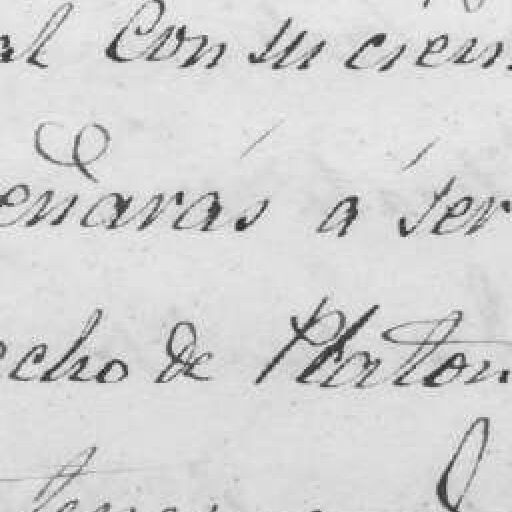 al Con su cien
enarás á ser
echo de Platon